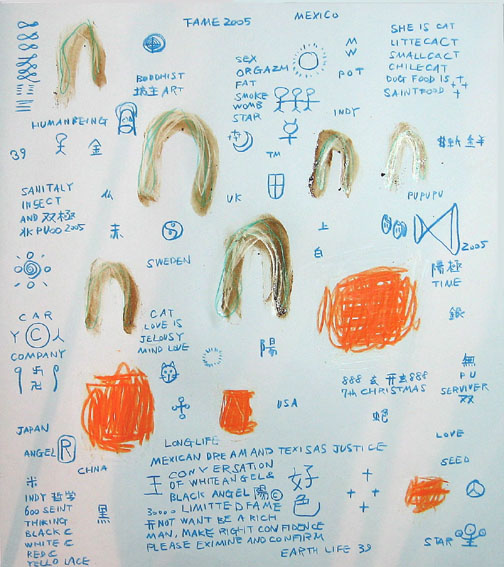 FAME 2005
MEXICO
SHE IS CAT
LITTECACT
SMALLCACT
CHILECAT
DOG FOOD IS
SAINTFOOD
M
W
POT
SEX
ORGAZM
FAT
SMOKE
WOMB
STAR
BODDHIST
ART
HUMANBEING
INDY
39
金
TM
SANITALY
INSECT
AND 双極
PUOO 2005
仏
UK
PUPUPU
赤
上
白
2005
陽極
TIME
SWEDEN
銀
CAR
Y C 人
COMPANY
CAT
LOVE IS
JELOUSY
MIND LOVE
陽
卍
無
PU
SERVIVER
双
888 玄 开 立 888
7th CHRISTMAS
USA
JAPAN
ANGEL R
CHINA
LOVE
SEED
LONGLIFE
MEXICAN DREAM AND TEXISAS JUSTICE
王 CONVERSATION
OF WHITE ANGEL &
BLACK ANGEL 陽 ©
好
色
30000 LIMITTED FAME
NOT WANT BE A RICH
MAN, MAKE RIGHT CONFIDENCE
PLEASE EXIMINE AND CONFIRM
EARTH LIFE 39
米
INDY 哲学
600 SEINT
THIKING
BLACK C
WHITE C
RED C
YELLO LACE
黒
STAR